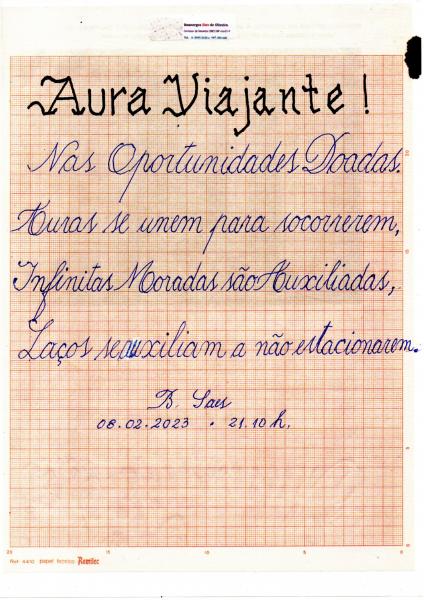 Aura Viajante !
Nas Oportunidades Doadas.
Auras se unem para socorrerem,
Infinitas Moradas são Auxiliadas,
Laços se auxiliam a não estacionarem.
B. Saes
08.02.2023 . 21.10 h.
20
15
10
5
0
Ref. 4410 papel técnico Remlec